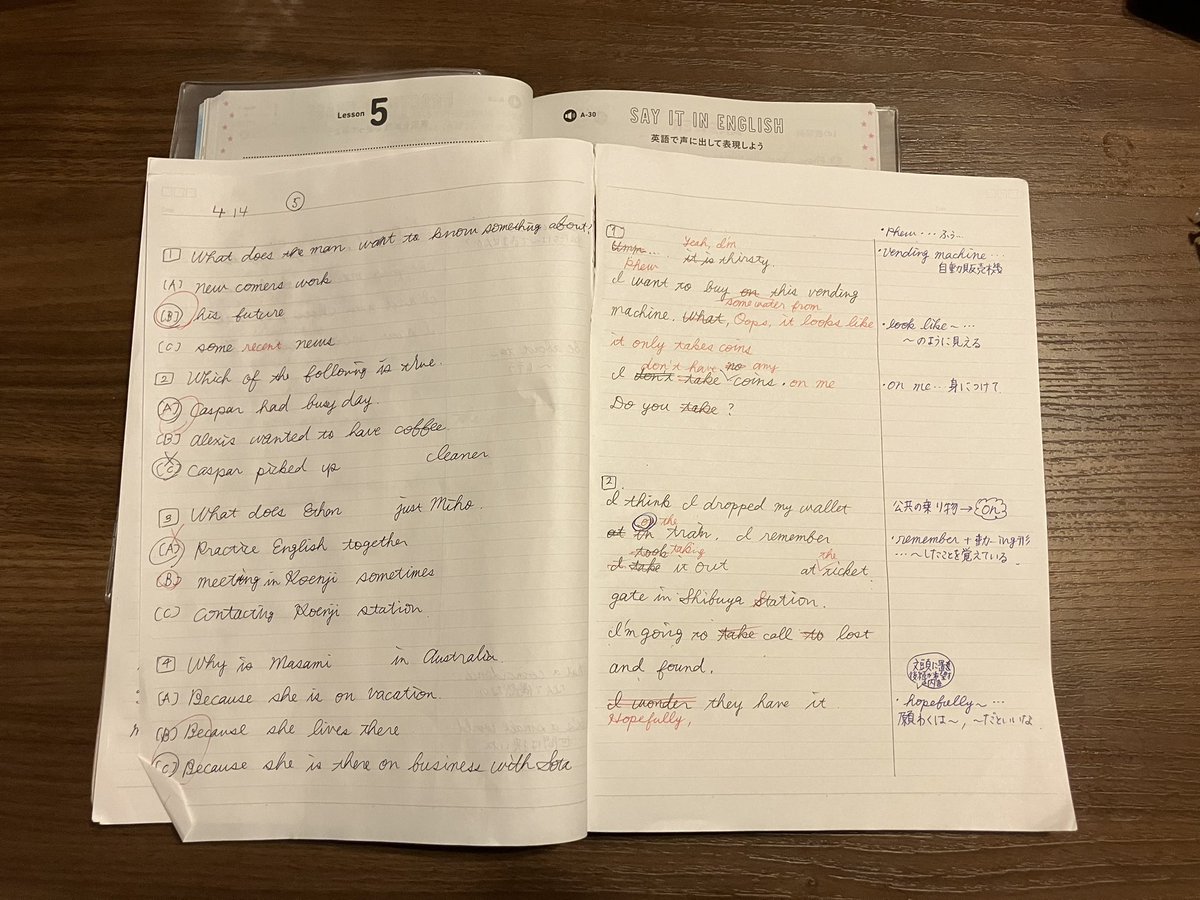 Lesson 5
A-30
SAY IT IN ENGLISH
英語で声に出して表現しよう
4 14 ⑤
1 What does the man want to know something about?
(A) new comers work
(B) his future
(C) some recent news
2 Which of the following is true.
(A) Caspar had busy day.
(B) Alexis wanted to have coffee.
(C) Caspar picked up cleaner
3 What does Ethen just Miho.
(A) Practice English together
(B) meeting in Koenji sometimes
(C) Contacting Koenji station.
4 Why is Masami in Australia.
(A) Because she is on vacation.
(B) Because she lives there
(C) Because she is there on business with Sota
1
Yeah, I'm
Umm... it is thirsty.
Phew
I want to buy on this vending
some water from
machine. What, Oops, it looks like
it only takes coins
don't have no any
I don't take coins. on me
Do you take?
2
I think I dropped my wallet
on the
at in train. I remember
took taking the
I take it out at ticket
gate in Shibuya Station.
I'm going to take call to lost
and found.
I wonder they have it.
Hopefully,
・Phew…ふぅ〜
・vending machine…
自動販売機
・look like〜…
〜のように見える
・on me…身につけて
公共の乗り物→on
・remember+動ing形
…〜したことを覚えている
・hopefully〜…
願わくは〜,〜だといいな